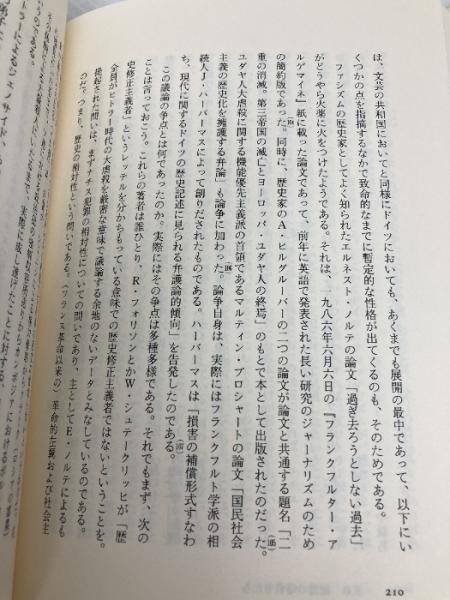 は、文芸の共和国においてと同様にドイツにおいても、あくまでも展開の最中であって、以下にい
くつかの点を指摘するなかで致命的なまでに暫定的な性格が出てくるのも、そのためである。
ファシズムの歴史家としてよく知られたエルネスト・ノルテの論文「過ぎ去ろうとしない過去」
がどうやら火薬に火をつけたようである。それは、一九八六年六月六日の『フランクフルター・ア
ルゲマイネ』紙に載った論文であって、前年に英語で発表された長い研究のジャーナリズムのため
の簡約版であった。同時に、歴史家のA・ヒルグルーバーの二つの論文が論文と共通する題名『二
重の消滅。第三帝国の滅亡とヨーロッパ・ユダヤ人の終焉』のもとで本として出版されたのだった。
ユダヤ人大虐殺に関する機能優先主義派の首領であるマルティン・ブロシャートの論文「国民社会
主義の歴史化を擁護する弁論」も論争に加わった。論争自身は、実際にはフランクフルト学派の相
続人J・ハーバーマスによって創りだされたものである。ハーバーマスは「損害の補償形式すなわ
ち、現代に関するドイツの歴史記述に見られる弁護論的傾向」を告発したのである。
この議論の争点とは何であったのか。実際にはその争点は多種多様である。それでもまず、次の
ことは言っておこう。これらの著者は誰ひとり、R・フォリソンとかW・シュテークリッヒが「歴
史修正主義者」というレッテルを分かちもっている意味での歴史修正主義者ではないということを。
全員がヒトラー時代の大虐殺を厳密な意味で議論する余地のないデータとみなしているのである。
提起された問いは、まずナチス犯罪の相対性についての問いであり、主としてE・ノルテによるも
のだ。つまり、歴史の相対性という問いである。(フランス革命以来の)革命的左翼および社会主
210